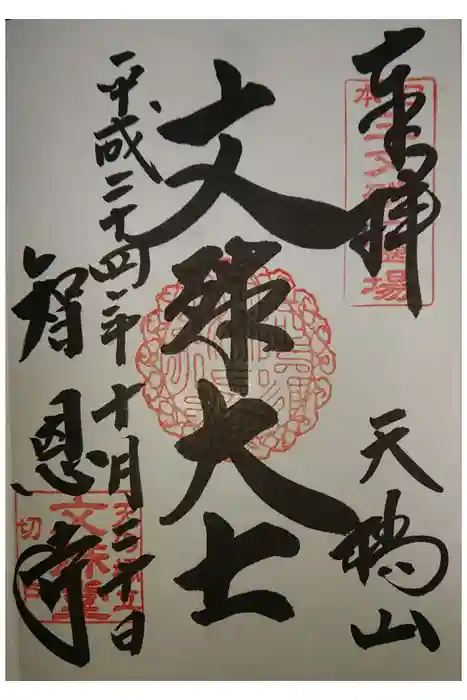 奉拝
日本
三文殊霊場
天橋山
文殊大士
平成二十四年十月三十日
智恩寺
文殊堂